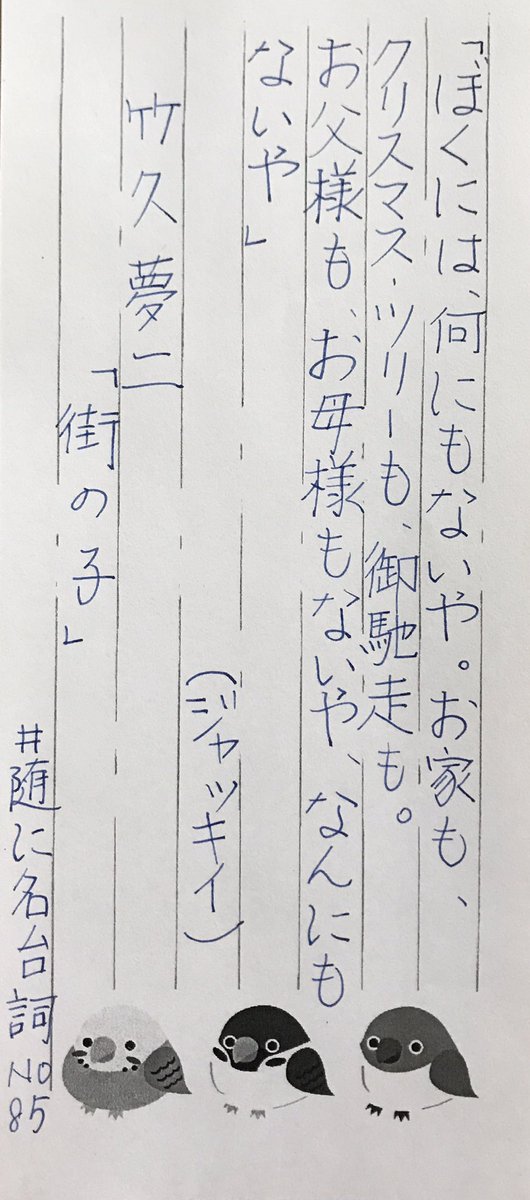 「ぼくには、何にもないや。お家も、
クリスマス・ツリーも、御馳走も。
お父様も、お母様もないや、なんにも
ないや」
(ジャッキイ)
竹久夢二
「街の子」
#随に名台詞 No85